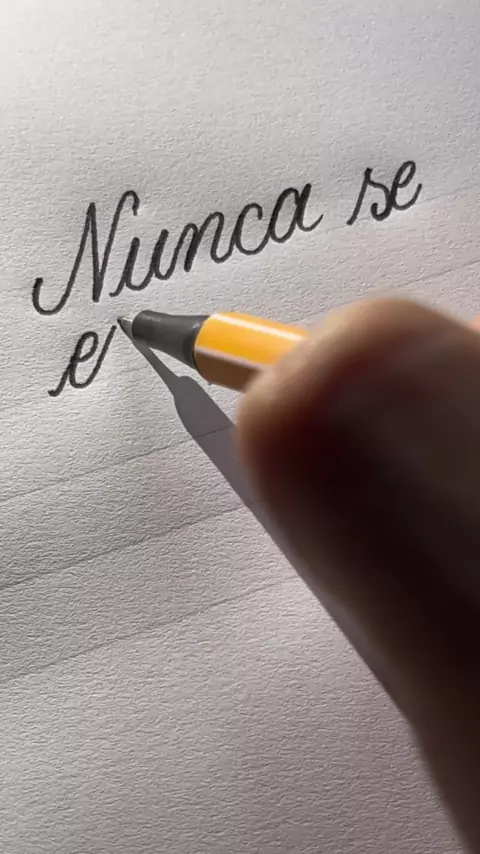 Nunca se
e